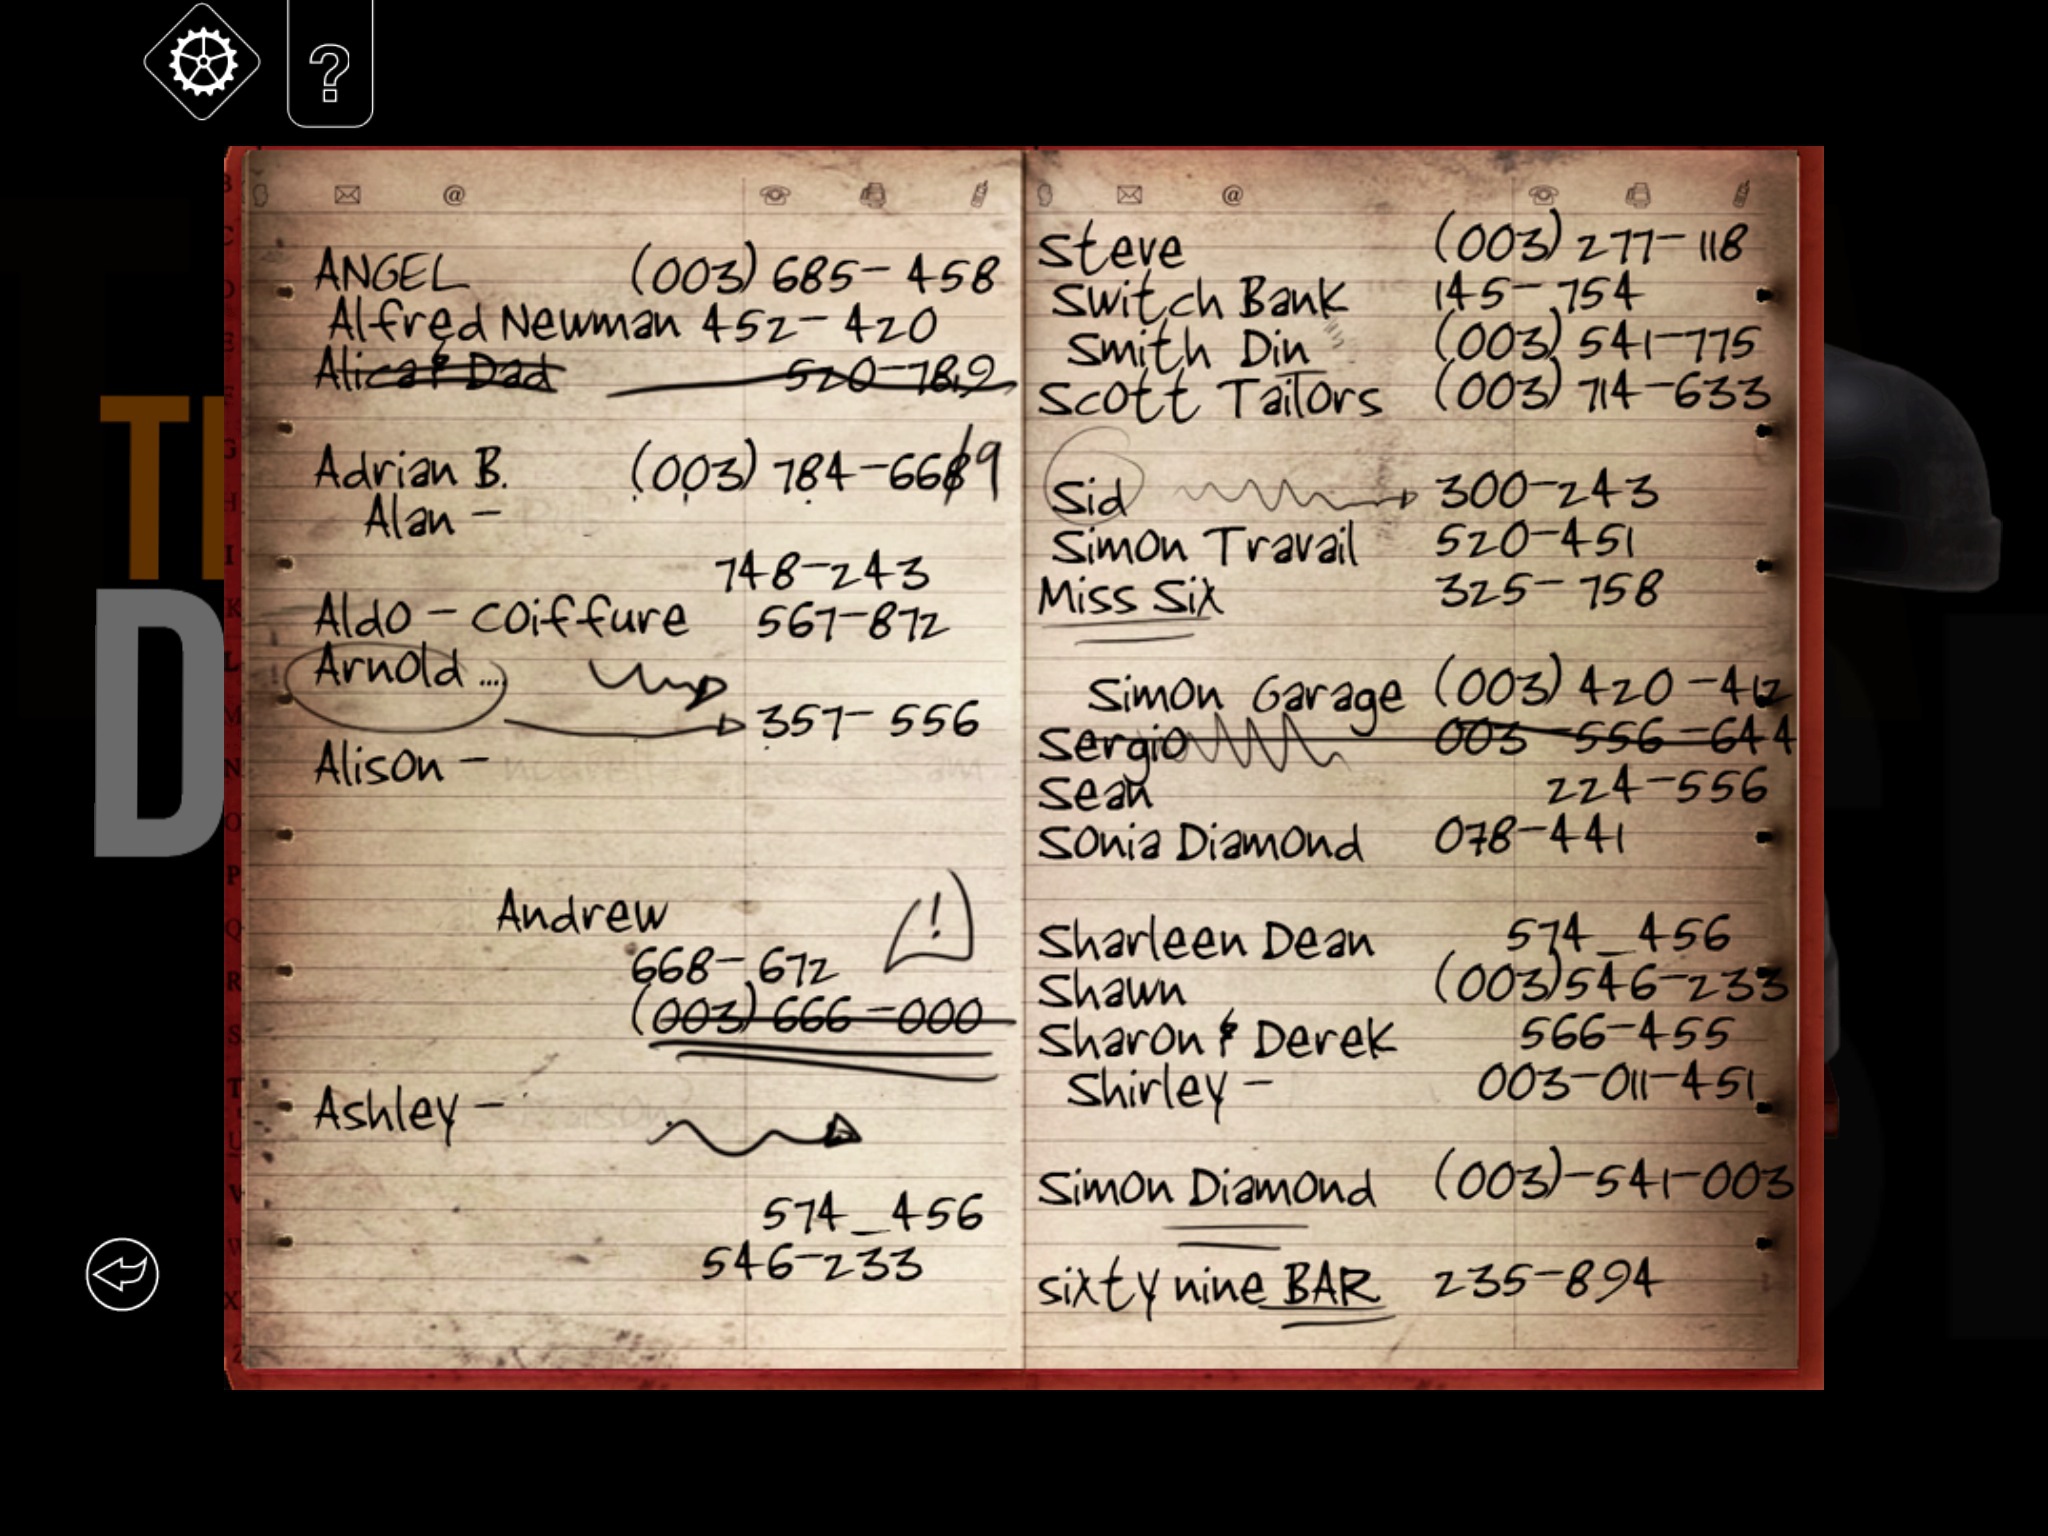 ?
@
ANGEL (003) 685-458
Alfred Newman 452-420
Alica & Dad 520-789
Adrian B. (003) 784-6689
Alan -
748-243
Aldo - coiffure 567-872
Arnold ...
357-556
Alison -
!
Andrew
668-672
(003) 666-000
Ashley -
574_456
546-233
@
Steve (003) 277-118
Switch Bank 145-754
Smith Din (003) 541-775
Scott Tailors (003) 714-633
Sid 300-243
Simon Travail 520-451
Miss Six 325-758
Simon Garage (003) 420-412
Sergio 003-556-644
Sean 224-556
Sonia Diamond 078-441
Sharleen Dean 574_456
Shawn (003)546-233
Sharon & Derek 566-455
Shirley - 003-011-451
Simon Diamond (003)-541-003
sixty nine BAR 235-894